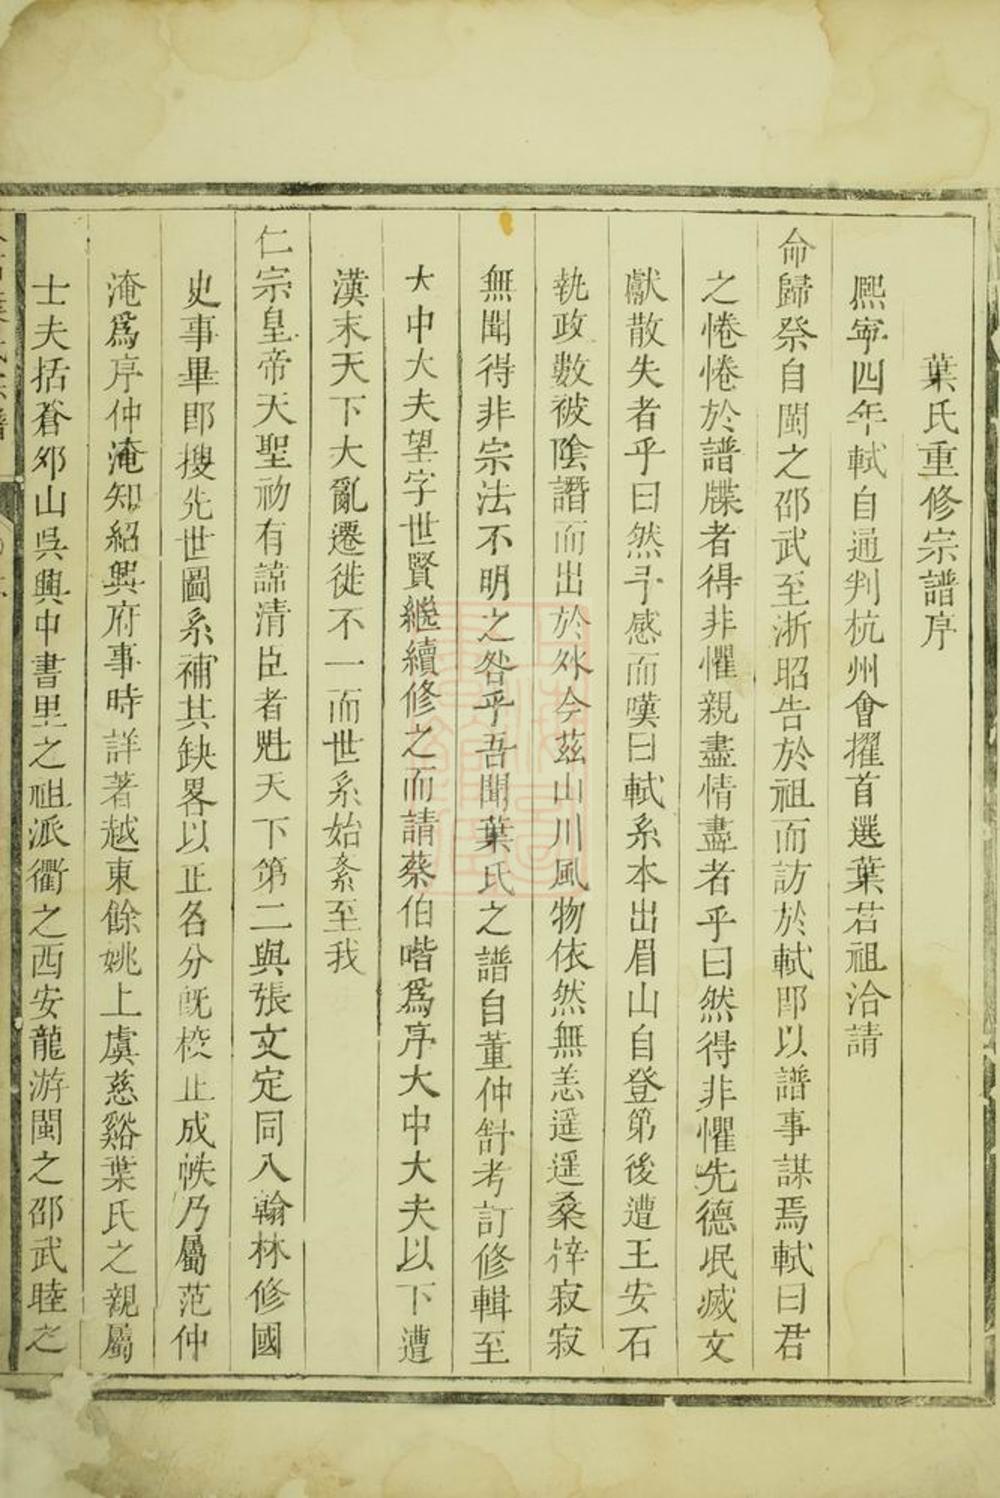 葉氏重修宗譜序
熙寧四年軾自通判杭州會擢首選葉君祖洽請
命歸祭自閩之邵武至浙昭告於祖而訪於軾即以譜事謀焉軾曰君
之惓惓於譜牒者得非懼親盡情盡者乎曰然得非懼先德泯滅文
獻散失者乎曰然予感而嘆曰軾系本出眉山自登第後遭王安石
執政數被陰譖而出於外今茲山川風物依然無恙遥遥桑梓寂寂
無聞得非宗法不明之咎乎吾聞葉氏之譜自董仲舒考訂修輯至
大中大夫望字世賢繼續修之而請蔡伯喈爲序大中大夫以下遭
漢末天下大亂遷徙不一而世系始紊至我
仁宗皇帝天聖初有諱清臣者魁天下第二與張文定同入翰林修國
史事畢即搜先世圖系補其缺畧以正名分既校正成帙乃屬范仲
淹爲序仲淹知紹興府事時詳著越東餘姚上虞慈谿葉氏之親屬
士夫括蒼夘山吳興中書里之祖派衢之西安龍游閩之邵武睦之